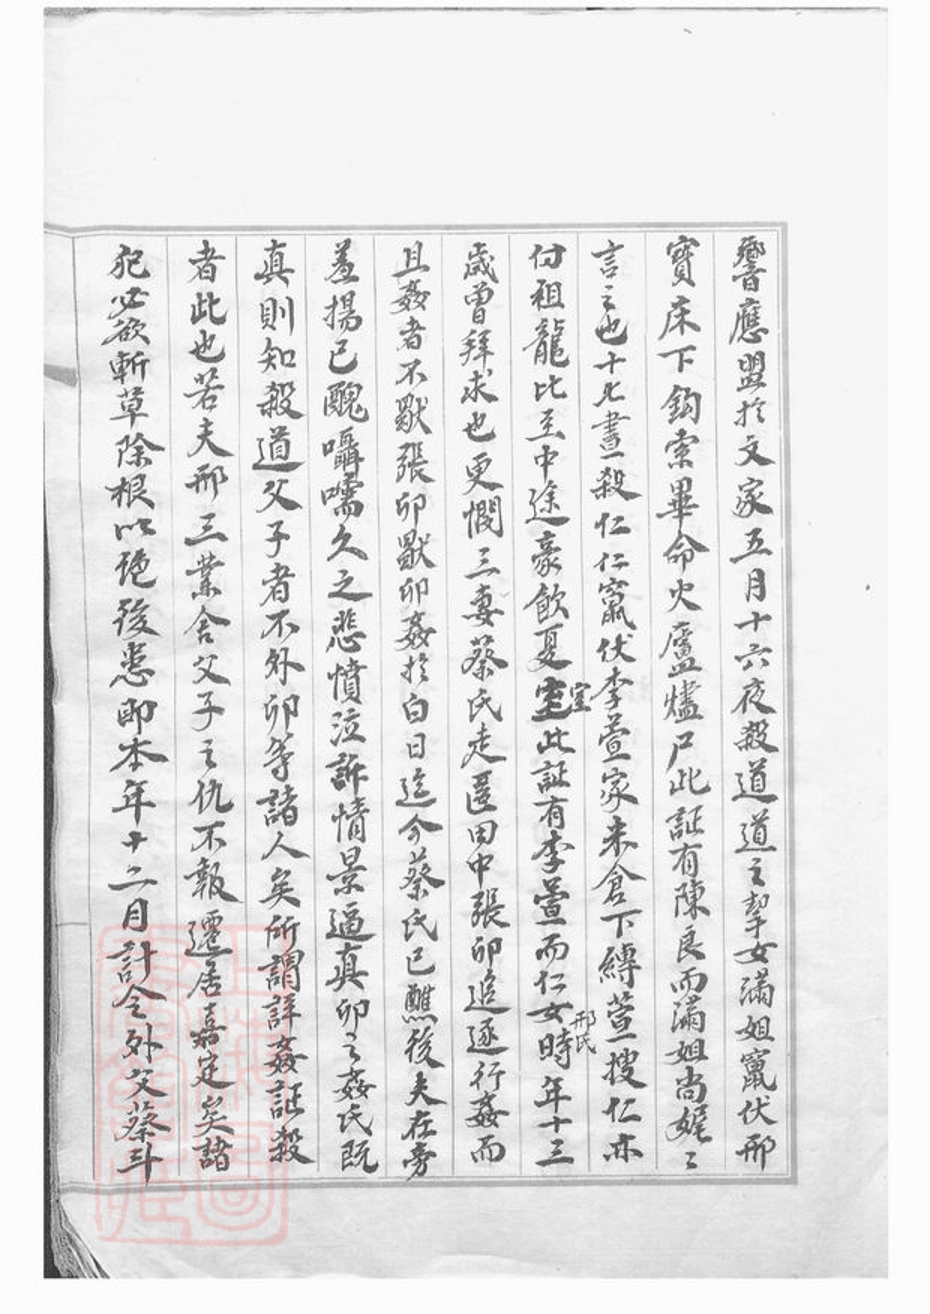 響應盟於文家五月十六夜殺道道之挈女滿姐竄伏邢
寶床下鈎索畢命火廬燼尸此証有陳良而滿姐尚娓〻
言之也十七晝殺仁仁竄伏李萱家米倉下縛萱搜仁亦
付祖龍比至中途豪飲夏室室此証有李萱而仁女邢氏時年十三
歲曾拜求也更憫三妻蔡氏走匿田中張卯追逐行姦而
且姦者不獸張卯獸卯姦於白日迄今蔡氏已醮後夫在旁
羞揚己醜囁嚅久之悲憤泣訴情景逼真卯之姦氏既
真則知殺道父子者不外卯等諸人矣所謂詳姦証殺
者此也若夫邢三業舍父子之仇不報遷居嘉定矣諸
犯必欲斬草除根以絕後患即本年十二月計令外父蔡斗